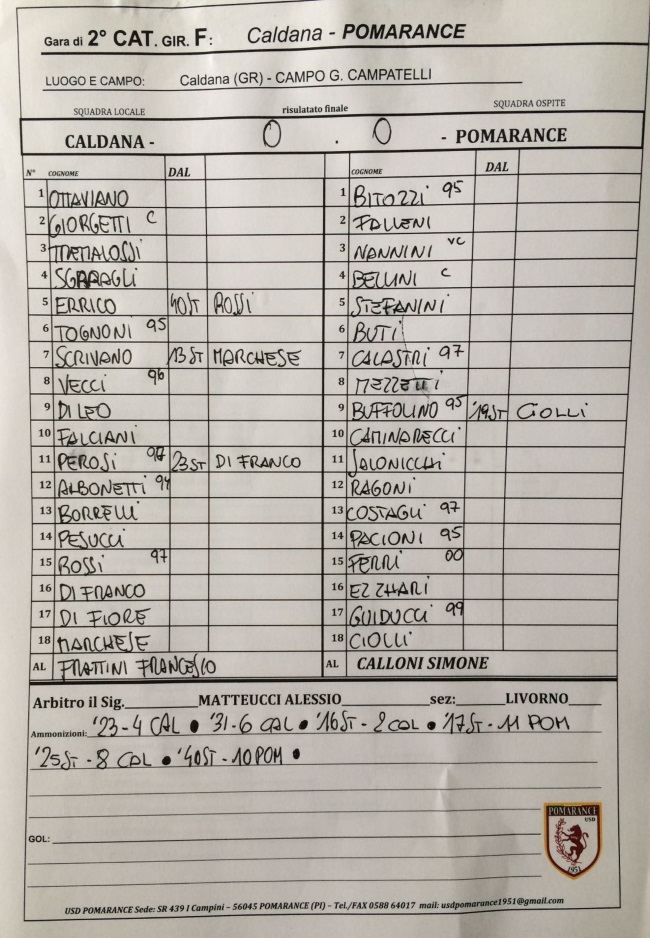 Gara di 2° CAT. GIR. F: Caldana - POMARANCE
LUOGO E CAMPO: Caldana (GR) - CAMPO G. CAMPATELLI
SQUADRA LOCALE risulatato finale SQUADRA OSPITE
CALDANA - 0 . 0 - POMARANCE
N° COGNOME DAL COGNOME DAL
1 OTTAVIANO 1 BITOZZI 95
2 GIORGETTI C 2 FALLENI
3 3 NANNINI VC
4 SGARAGLI 4 BELLINI C
5 ERRICO 40ST ROSSI 5 STEFANINI
6 TOGNONI 95 6 BUTI
7 SCRIVANO 13ST MARCHESE 7 CALASTRI 97
8 VECCI 96 8 MEZZETTI
9 DI LEO 9 BUFFOLINO 95 '19ST CIOLLI
10 FALCIANI 10 CAMINARECCI
11 PEROSI 23ST DI FRANCO 11 SALONICCHI
12 ALBONETTI 94 12 RAGONI
13 BORRELLI 13 COSTAGLI 97
14 PESUCCI 14 PACIONI 95
15 ROSSI 97 15 FERRI 00
16 DI FRANCO 16 EZZHARI
17 DI FIORE 17 GUIDUCCI 99
18 MARCHESE 18 CIOLLI
AL FRATTINI FRANCESCO AL CALLONI SIMONE
Arbitro il Sig. MATTEUCCI ALESSIO sez: LIVORNO
Ammonizioni: '23-4 CAL • '31-6 CAL • '16ST-2 CAL • '17ST-11 POM
'25ST-8 CAL • '40ST-10 POM •
GOL:
POMARANCE
USD
1951
USD POMARANCE Sede: SR 439 I Campini – 56045 POMARANCE (PI) – Tel./FAX 0588 64017 mail: usdpomarance1951@gmail.com